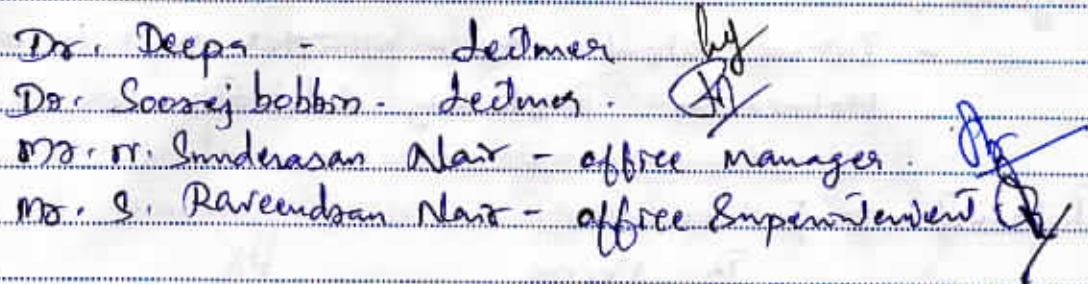 Dr. Deepa - Lecturer
Dr. Sooraj bobbin - Lecturer.
Mr. N. Sunderasan Nair - office manager.
Mr. S. Raveendran Nair - office Superintendent